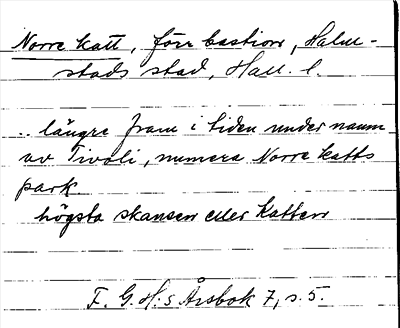 Norre Katt, förr bastion, Halm-
stads stad, Hall. l.
.. längre fram i tiden under namn
av Tivoli, numera Norre Katts
park.
högsta skansen eller Katten
F. G. H:s Årsbok 7, s. 5.